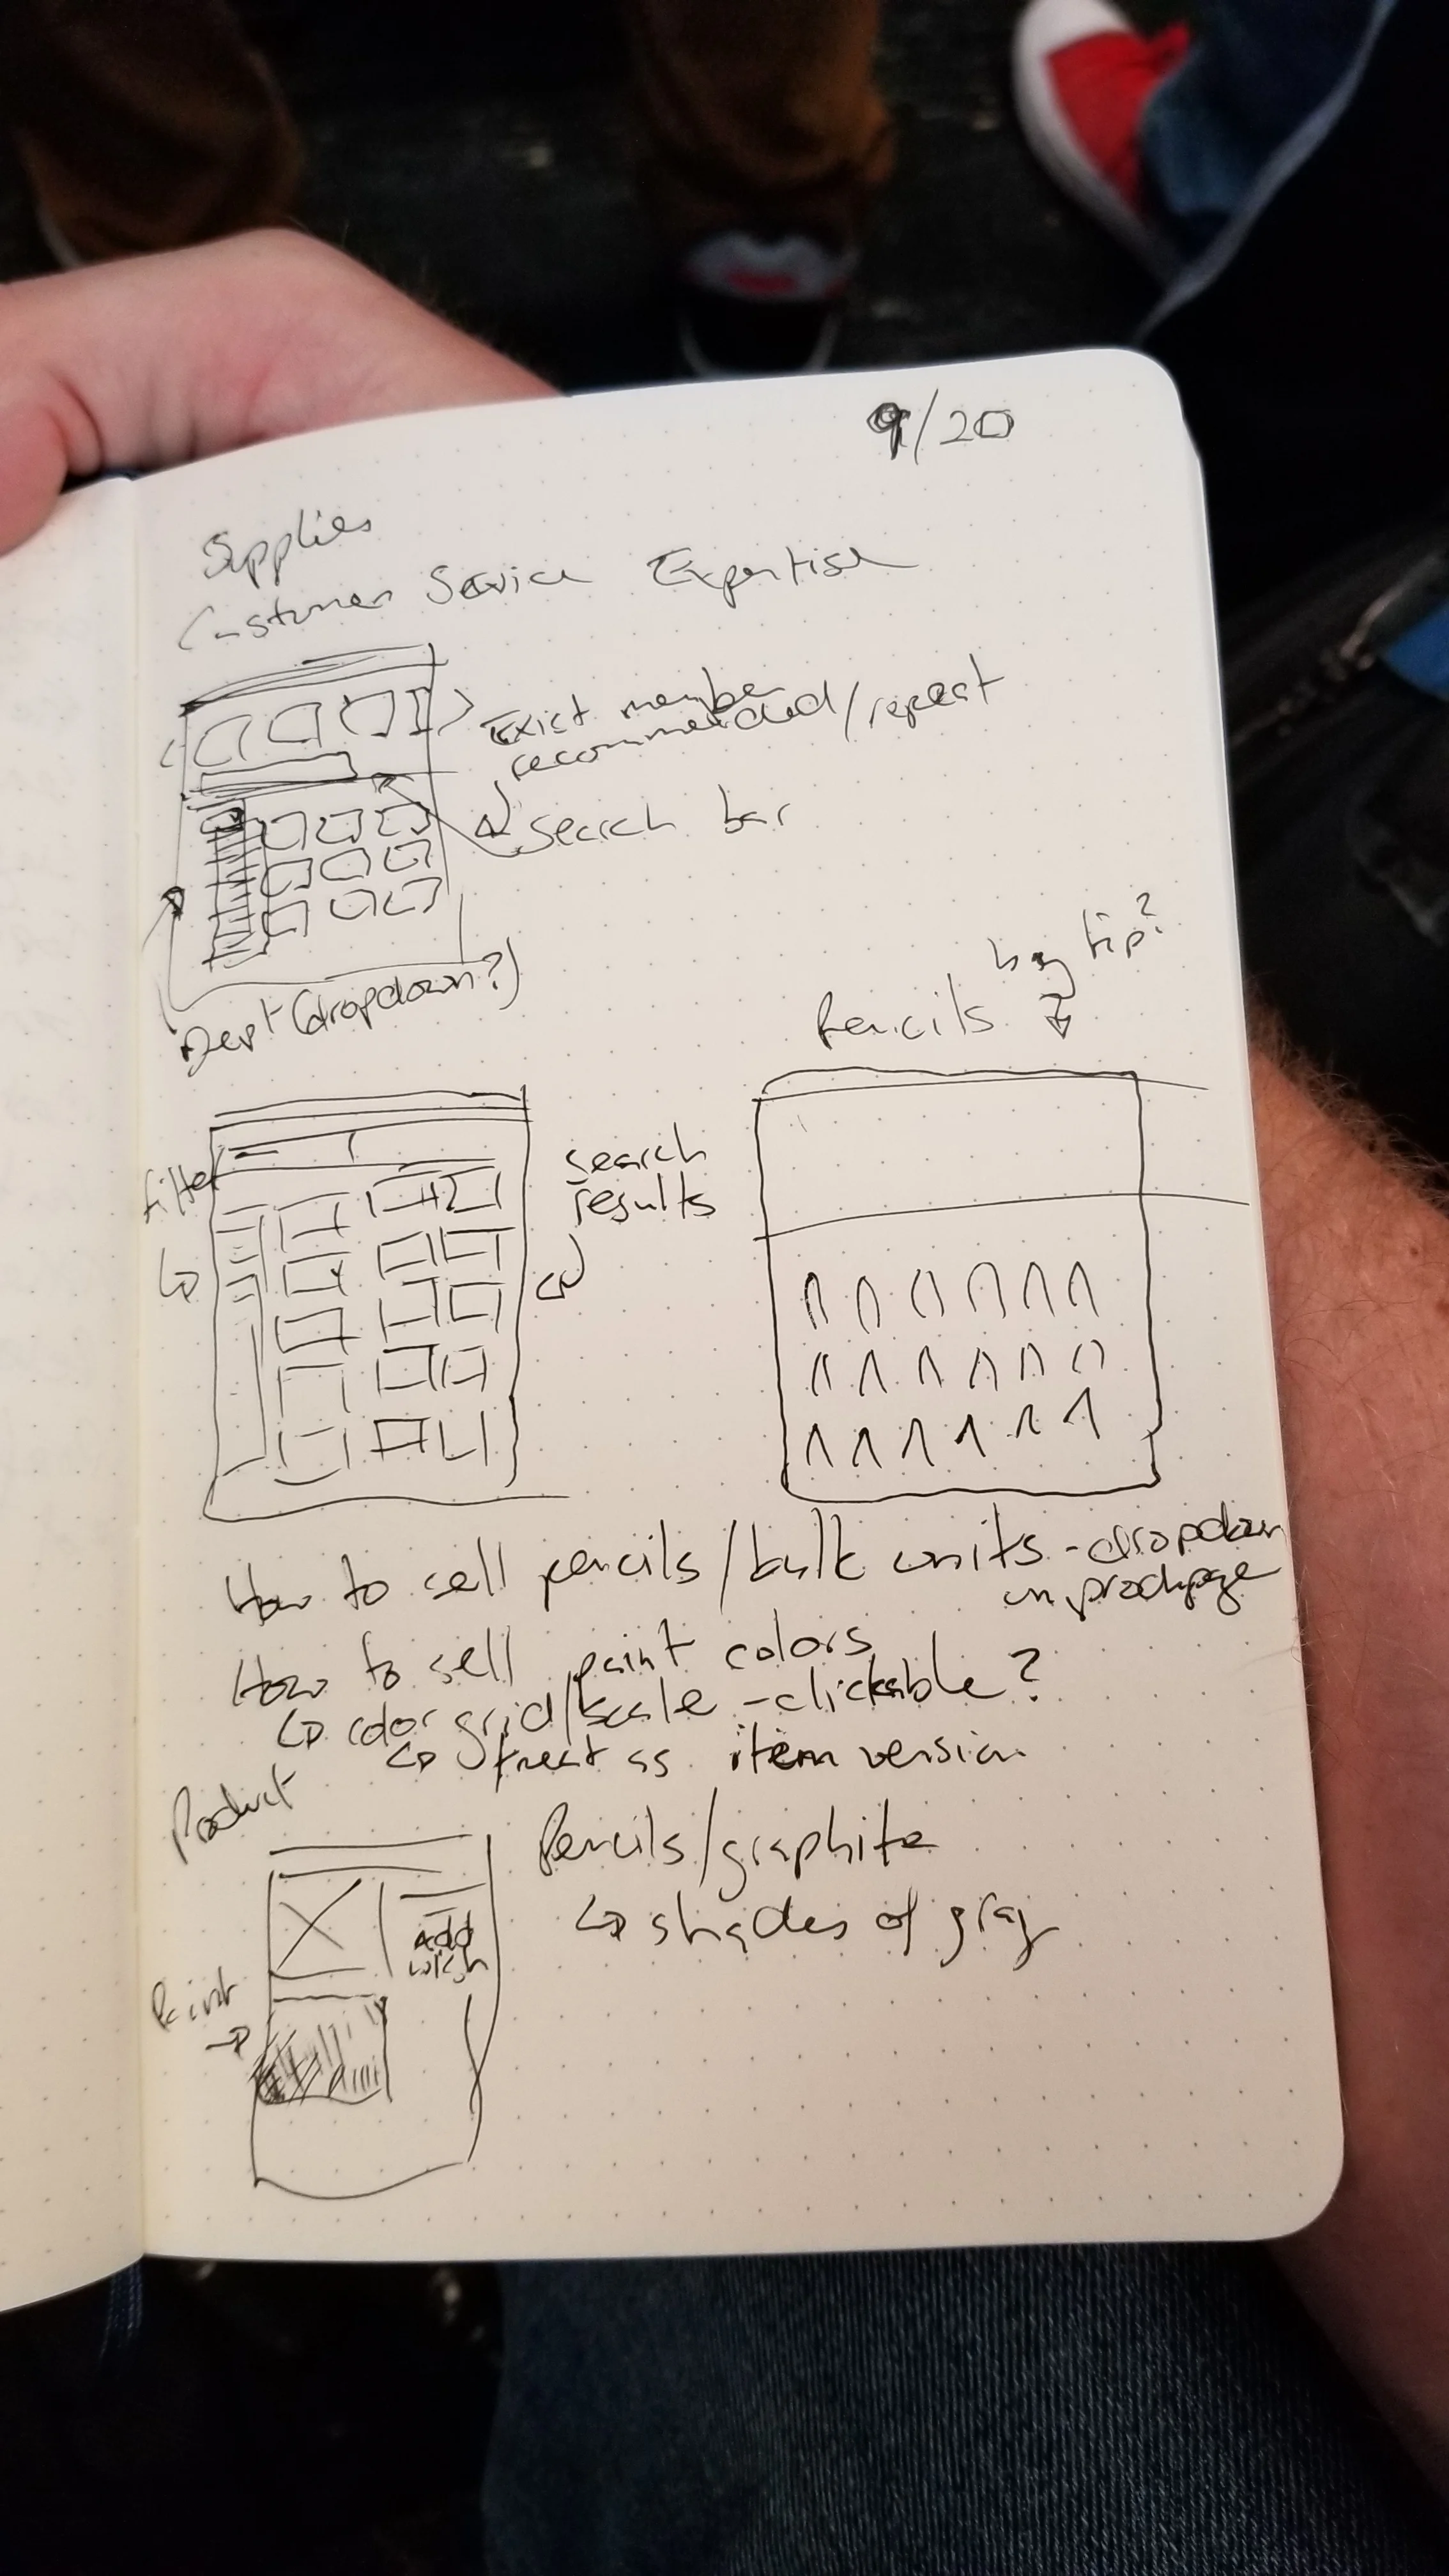 9/20
Supplies
Customer Service Expertise
Exist member
recommended/repeat
search bar
Dept (dropdown?)
Pencils by tip?
Filter
search
results
How to sell pencils/bulk units - dropdown
on prodpage
How to sell paint colors
↳ color grid/scale - clickable?
↳ treat as item version
Product
Pencils/graphite
↳ shades of gray
Add
wish
Paint